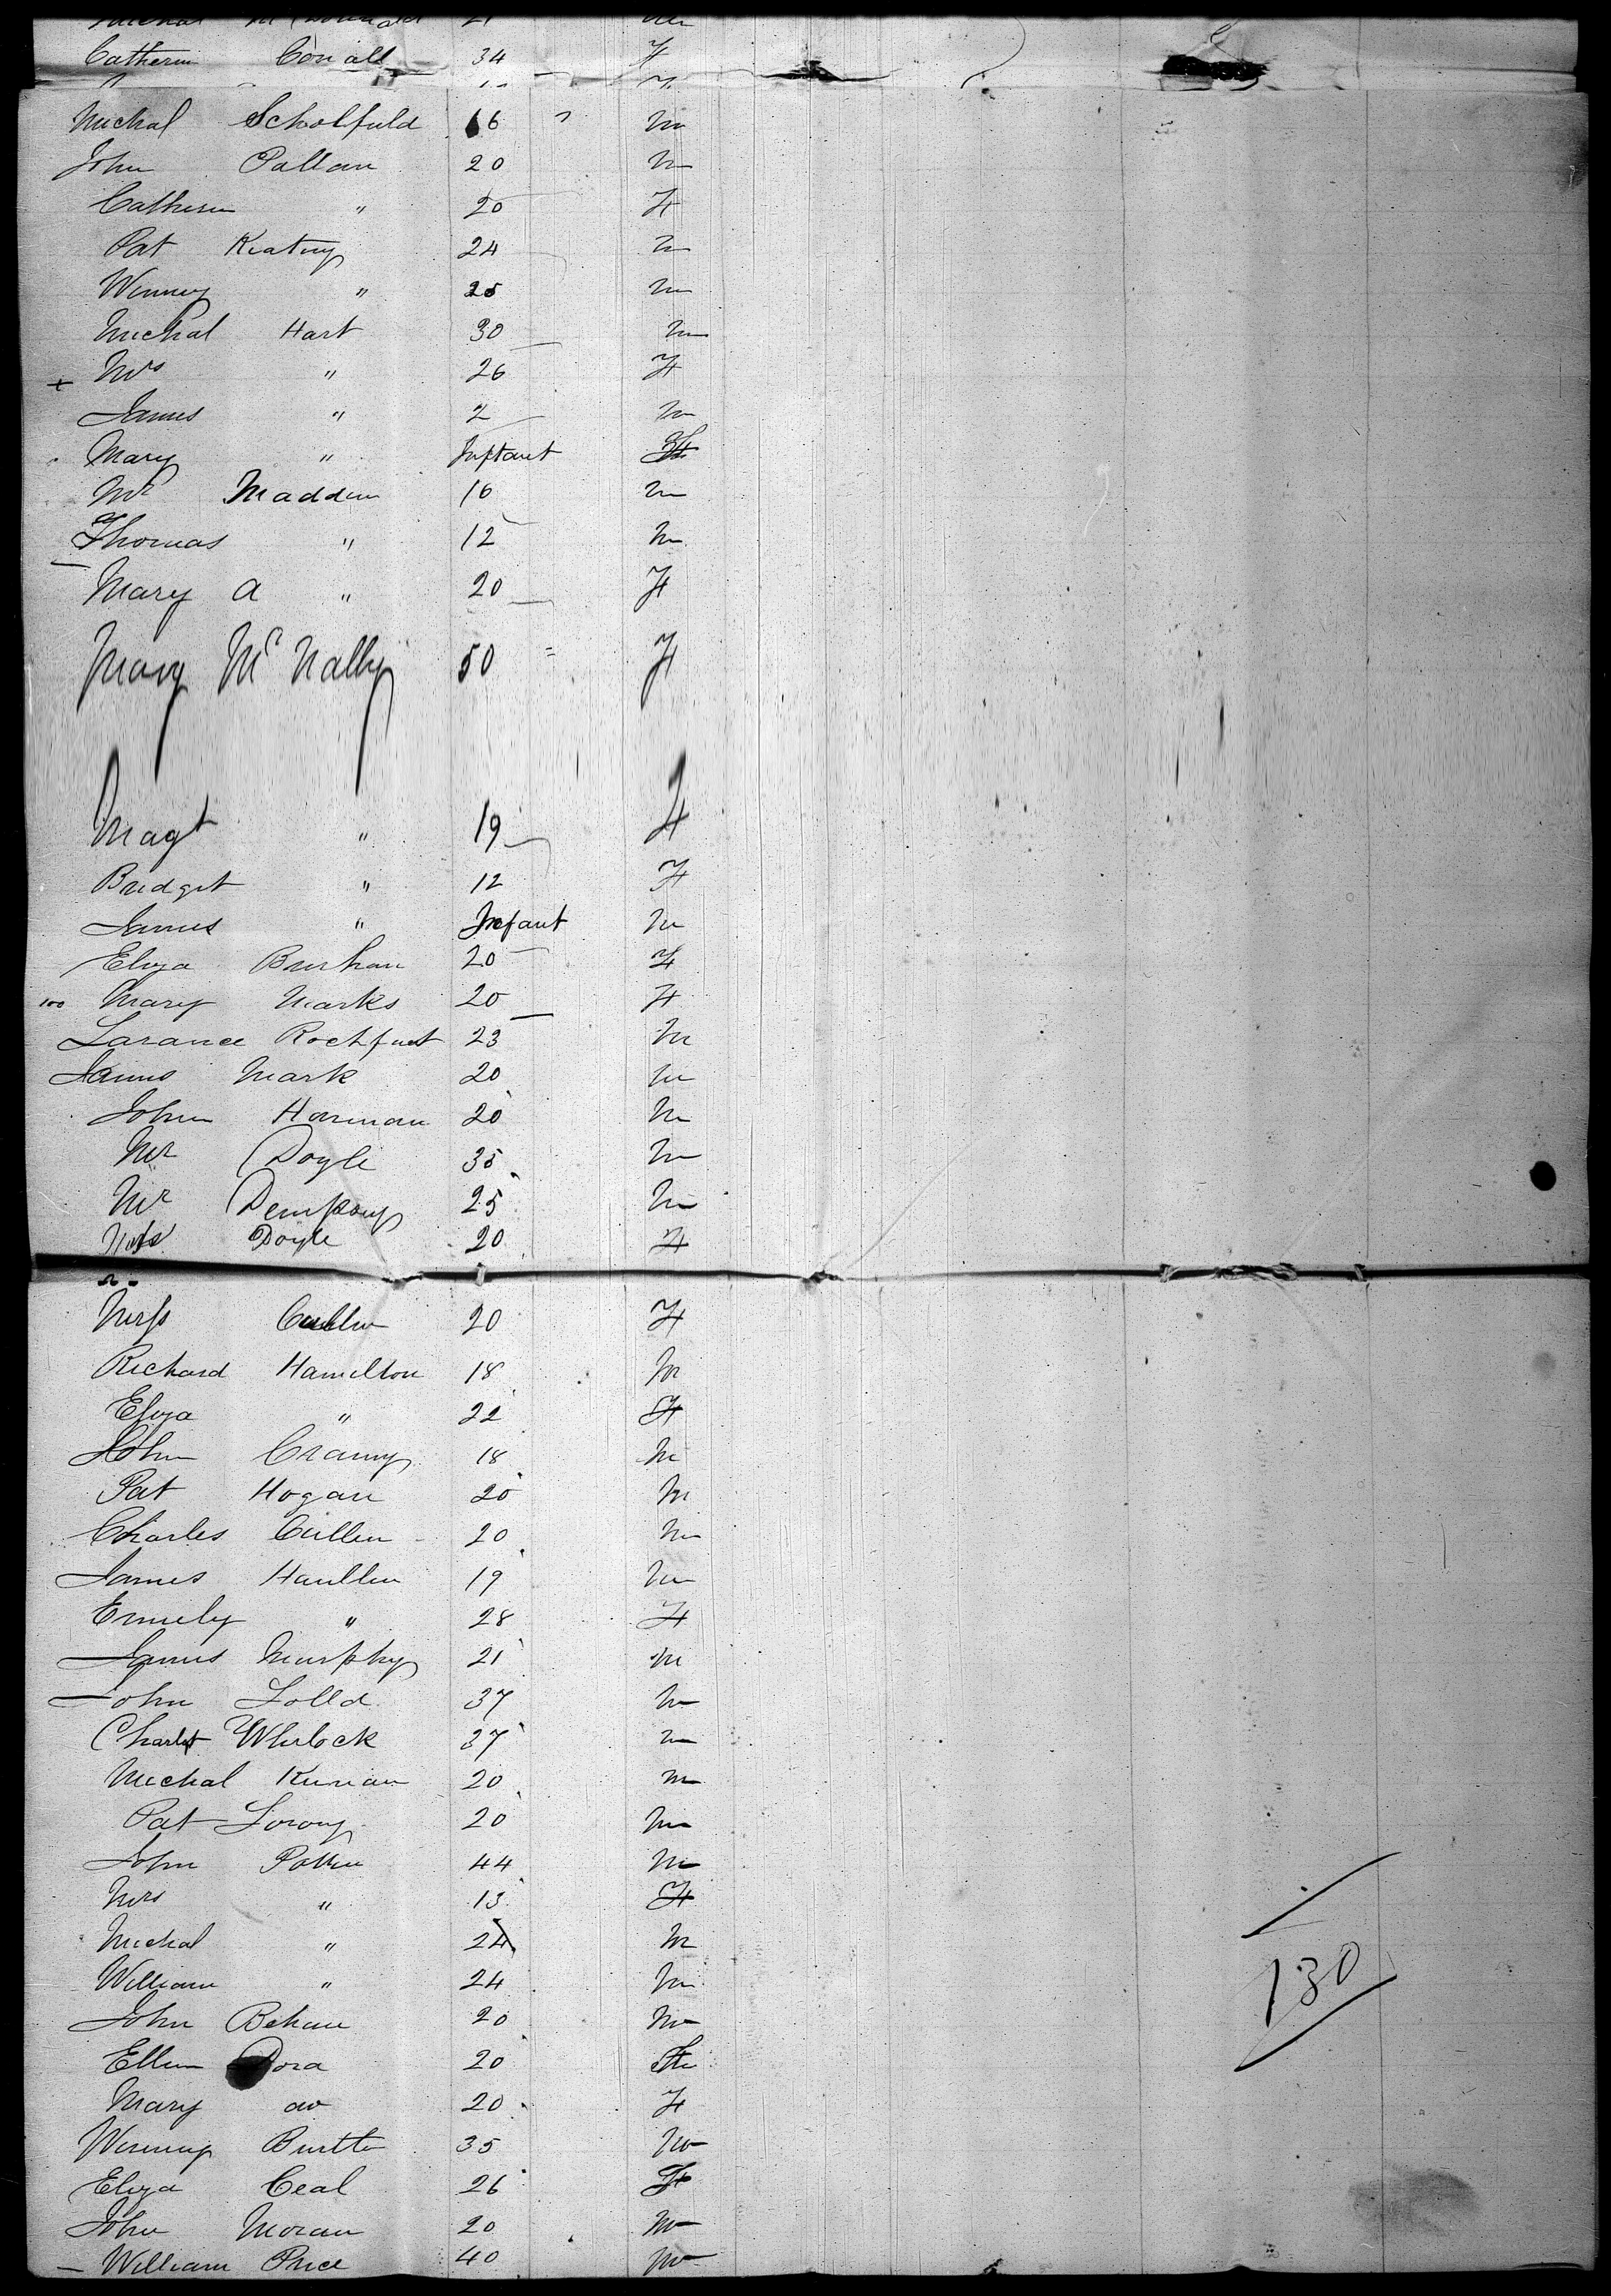 Michal McDonald 21 m
Catherin 34 F
Michal Scholfuld 16 m
John Pallan 20 m
Catherin " 20 F
Pat Keating 24 m
Winney " 25 m
Michal Hart 30 m
+ Mrs " 26 F
James " 2 m
Mary " Inftant F
Mr Madden 16 m
Thomas " 12 m
Mary A " 20 F
Mary McNally 50 " F
Magt " 19 F
Bridget " 12 F
James " Infant m
Eliza 20 F
100 Mary Marks 20 F
Larance Rochfurt 23 m
James Mark 20 m
John Harman 20 m
Mr Doyle 35 m
Mr Dempsey 25 m
Doyle 20 F
Cullen 20 F
Richard Hamilton 18 m
Eliza " 22 F
John Crany 18 m
Pat Hogan 20 m
Charles Cullen 20 m
James Haullen 19 m
Emmely " 28 F
James Murphy 21 m
John Lolld 37 m
Charles Wherlock 37 m
Michal Kernan 20 m
Pat 20 m
John Potter 44 m
Mrs " 13 F
Michal " 24 m
William " 24 m
130
John Behan 20 m
Ellen Dora 20 F
Mary do 20 F
Winney 35 m
Eliza Ceal 26 F
John Moran 20 m
William Price 40 m